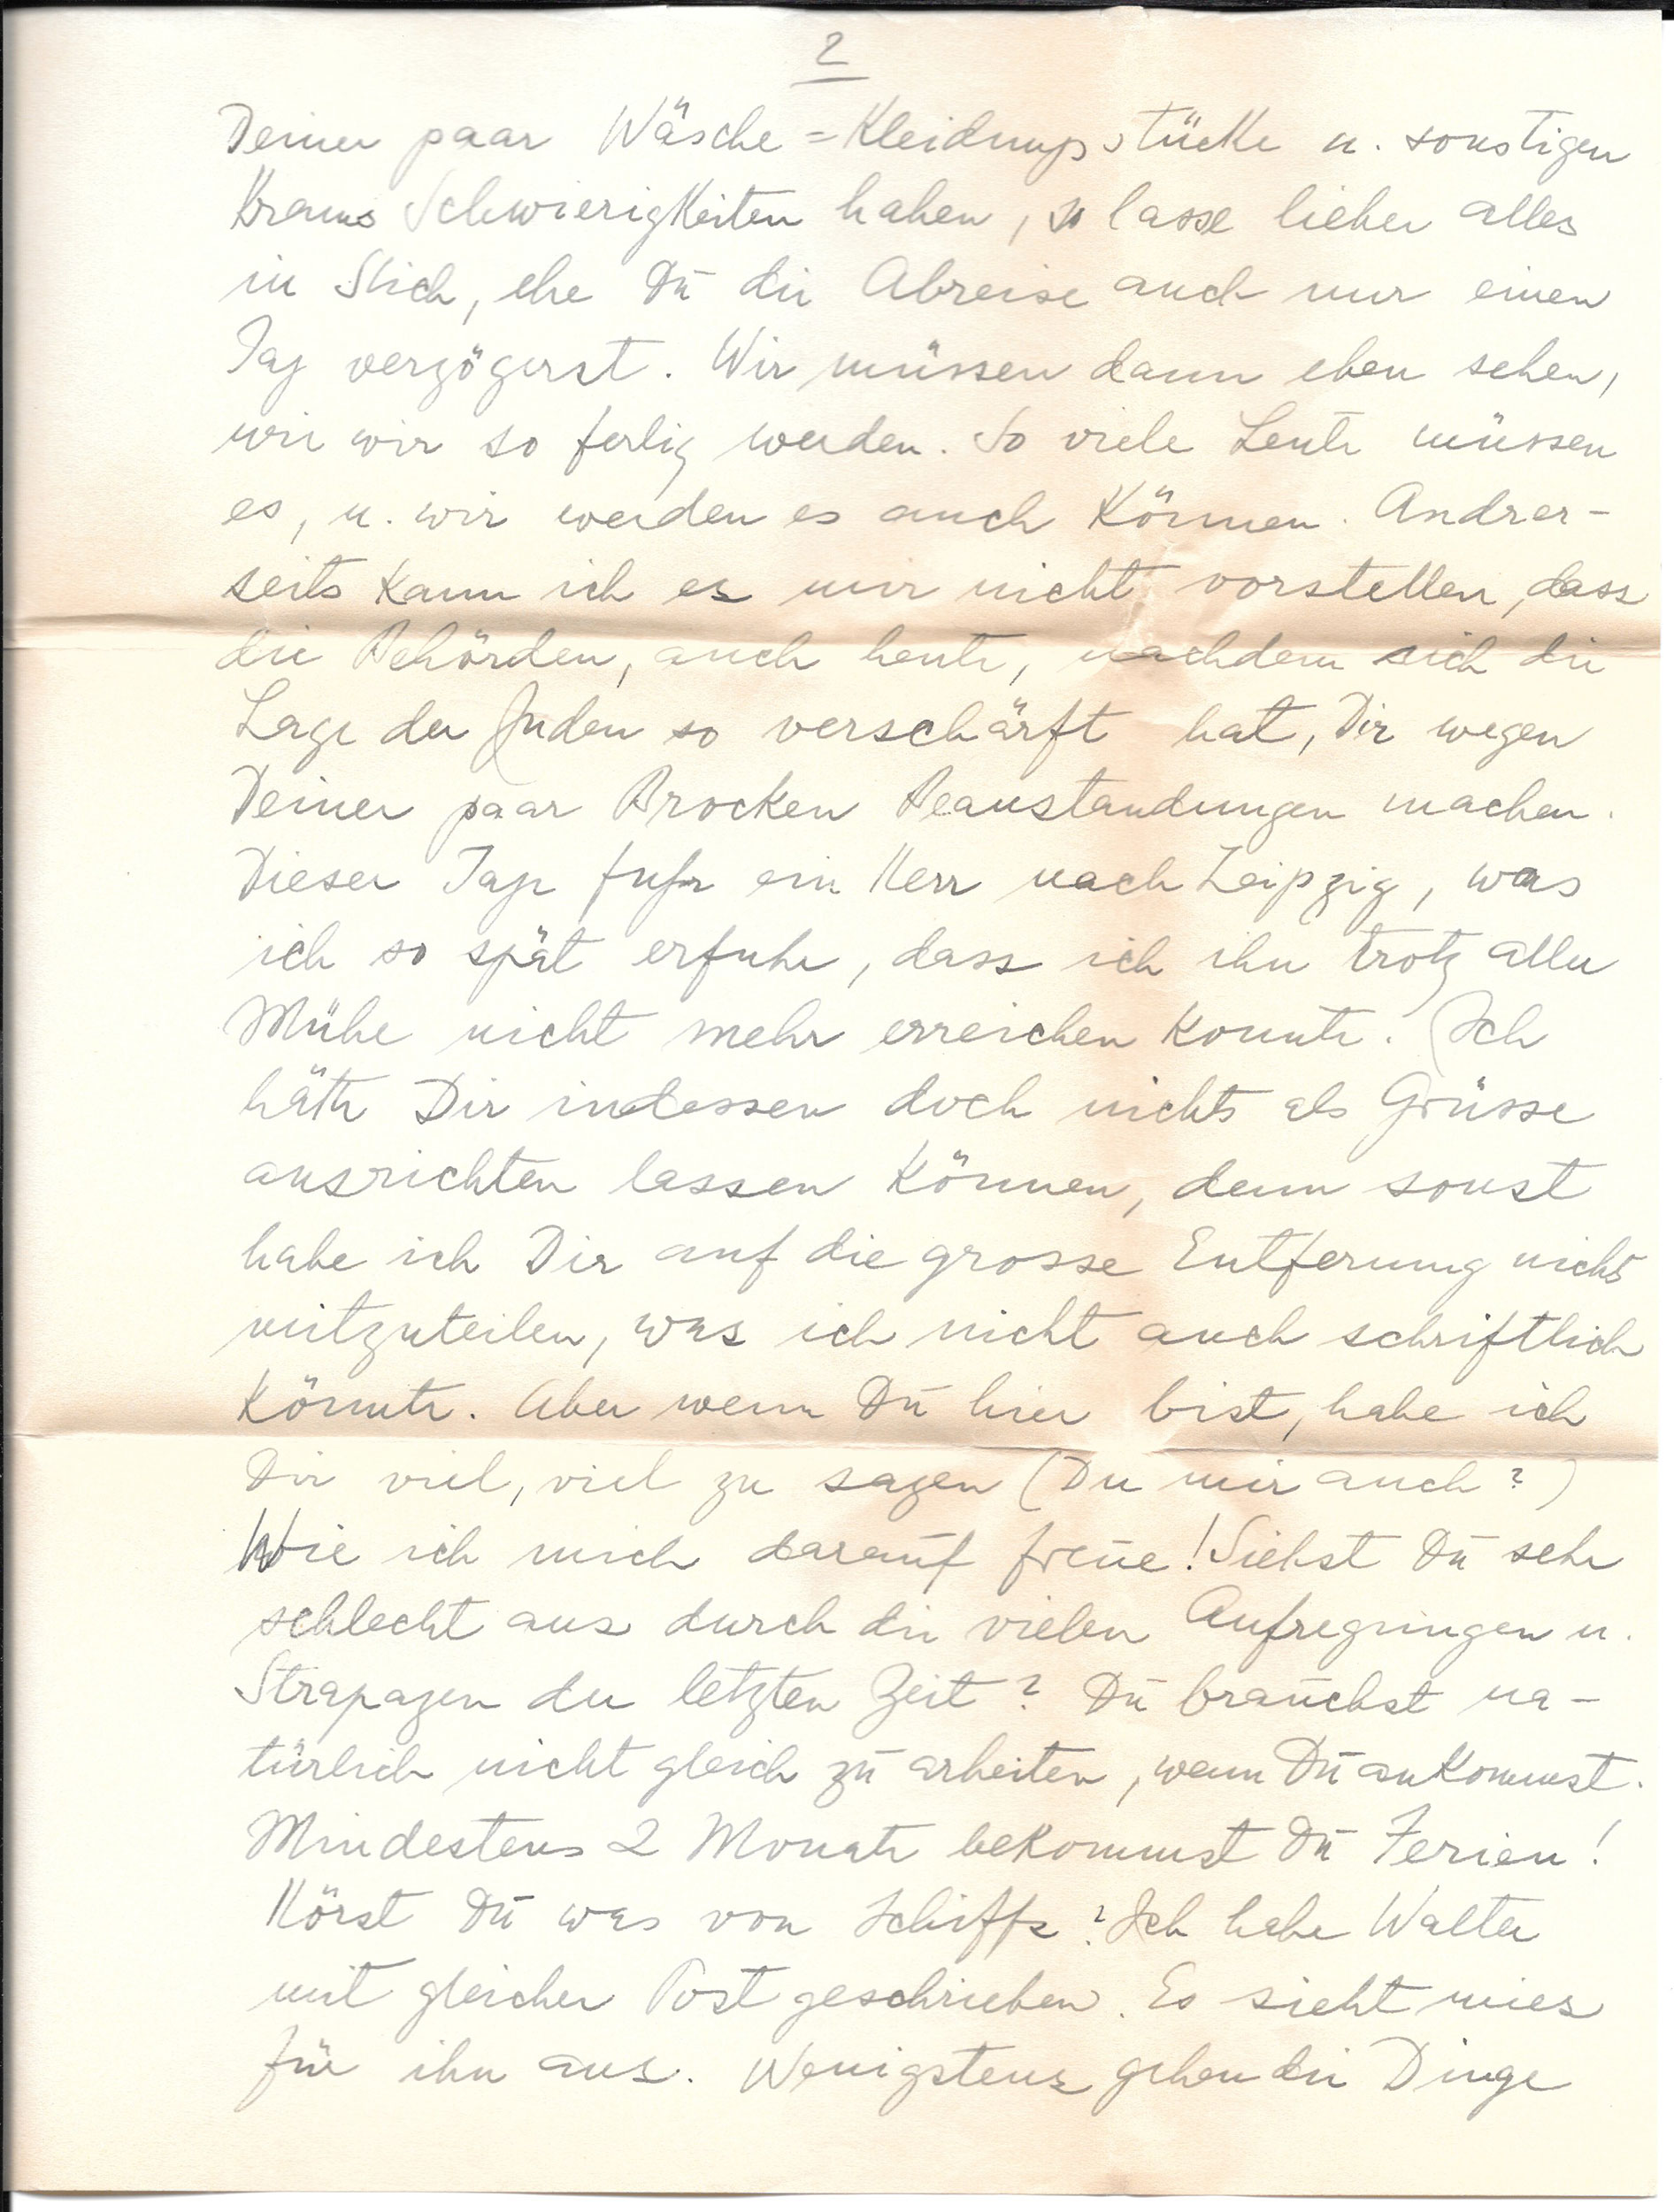 2
Deiner paar Wäsche=Kleidungsstücke u. sonstigen
Krams Schwierigkeiten haben, so lasse lieber alles
in Stich, ehe Du die Abreise auch nur einen
Tag verzögerst. Wir müssen dann eben sehen,
wie wir so fertig werden. So viele Leute müssen
es, u. wir werden es auch können. Andrer-
seits kann ich es mir nicht vorstellen, dass
die Behörden, auch heute, nachdem sich die
Lage der Juden so verschärft hat, Dir wegen
Deiner paar Brocken Beanstandungen machen.
Dieser Tage fuhr ein Herr nach Leipzig, was
ich so spät erfuhr, dass ich ihn trotz aller
Mühe nicht mehr erreichen konnte. Ich
hätte Dir indessen doch nichts als Grüsse
ausrichten lassen können, denn sonst
habe ich Dir auf die grosse Entfernung nichts
mitzuteilen, was ich nicht auch schriftlich
könnte. Aber wenn Du hier bist, habe ich
Dir viel, viel zu sagen (Du mir auch?)
Wie ich mich darauf freue! Siehst Du sehr
schlecht aus durch die vielen Aufregungen u.
Strapazen der letzten Zeit? Du brauchst na-
türlich nicht gleich zu arbeiten, wenn Du ankommst.
Mindestens 2 Monate bekommst Du Ferien!
Hörst Du was von Schiffs? Ich habe Walter
mit gleicher Post geschrieben. Es sieht mies
für ihn aus. Wenigstens gehen die Dinge